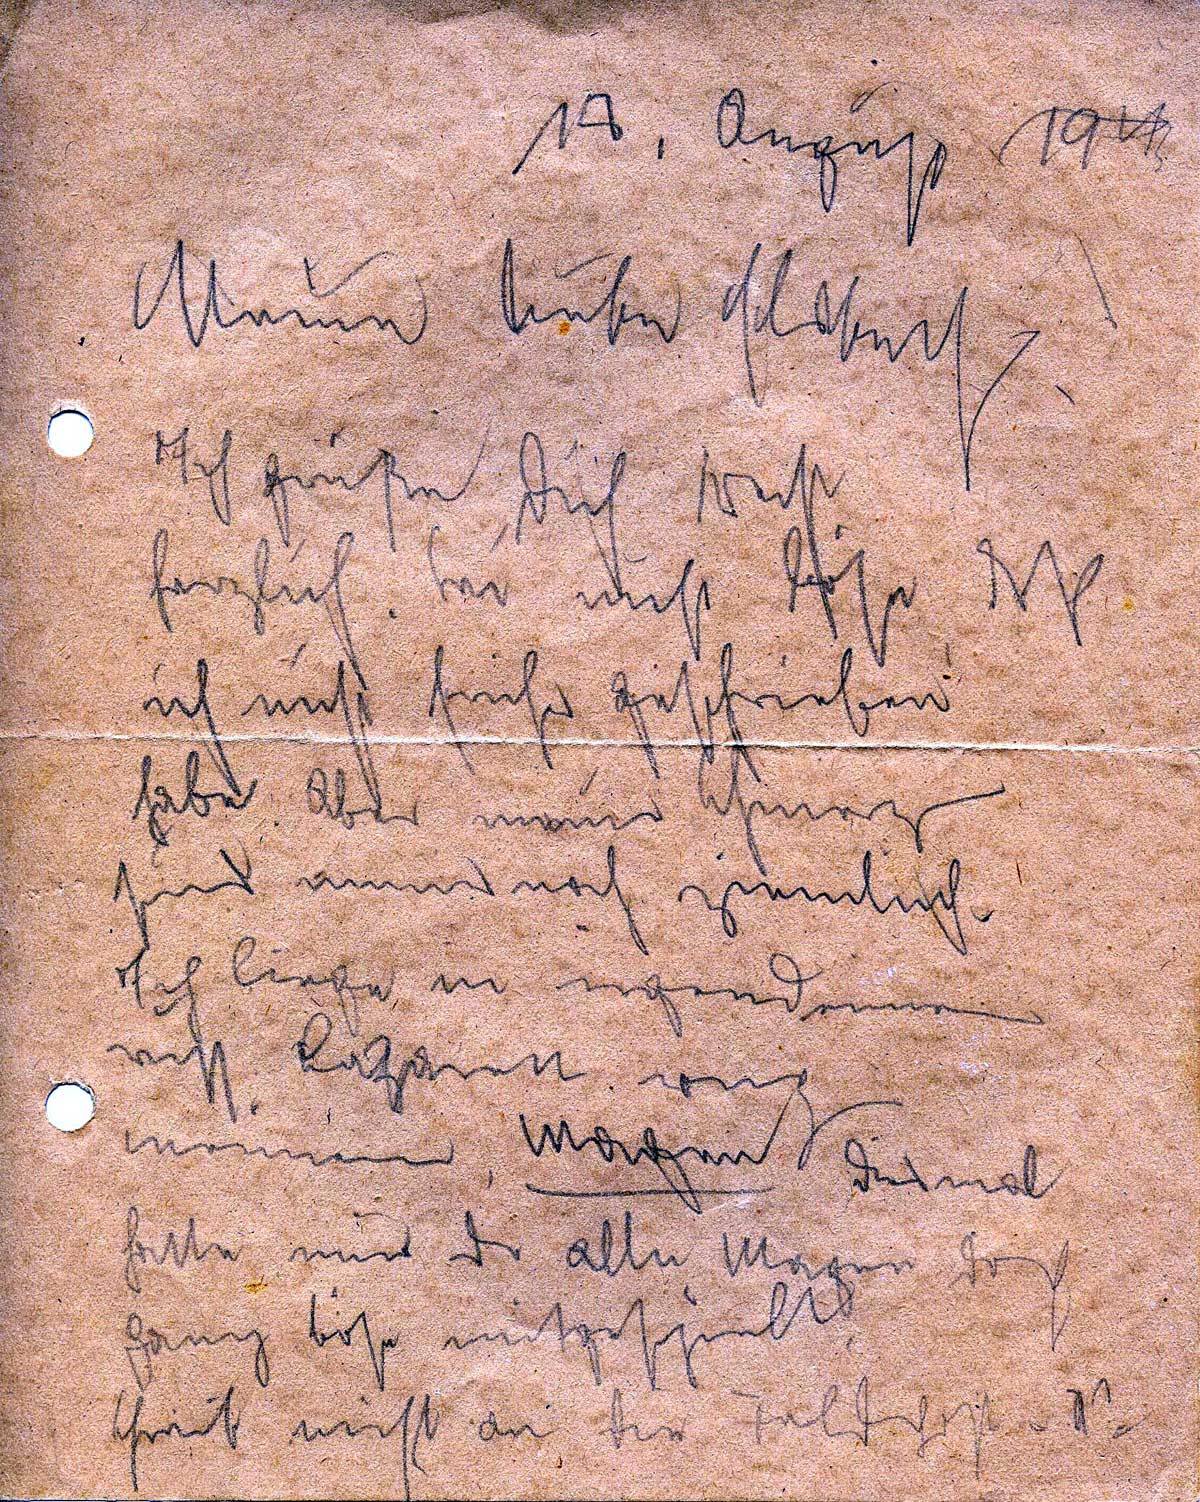 18. August 19
Meine liebe Elsbeth
Ich grüße Dich recht
herzlich. Sei nicht böse daß
ich nicht früher geschrieben
habe. Aber meine Schmerzen
sind immer noch ziemlich.
Ich liege in irgendeinem
Lazarett wegen
meinem Magen diesmal
hatte mir der alte Magen doch
ganz böse mitgespielt.
Schreib nicht an die Feldpost